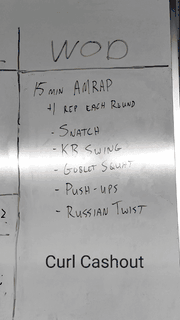 WOD
15 MIN AMRAP
+1 REP EACH ROUND
- SNATCH
- KB SWING
- GOBLET SQUAT
- PUSH-UPS
- RUSSIAN TWIST
Curl Cashout